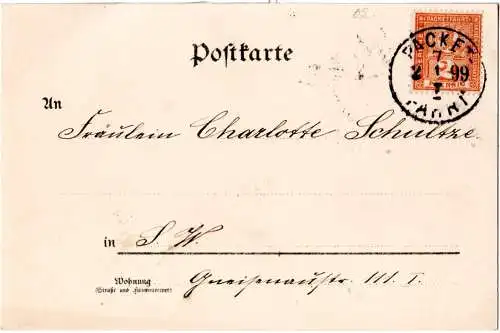 Postkarte
PACKETFAHRT
2
PACKET
7
2 1 99
FAHRT
An
Fräulein Charlotte Schultze
in S. W.
Wohnung
(Straße und Hausnummer)
Gneisenaustr. 111. I.